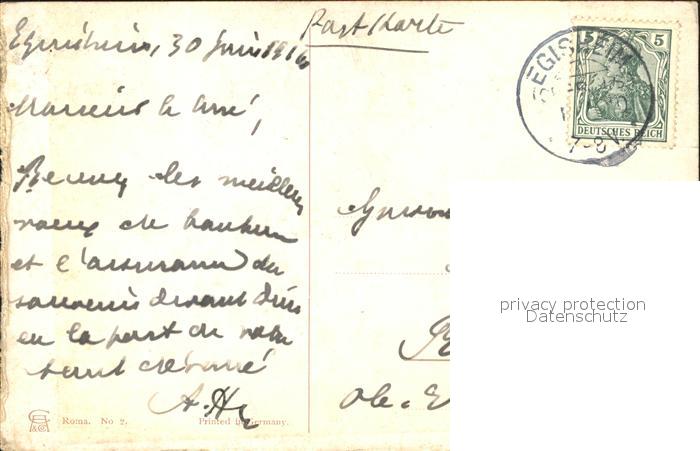 Egisheim, 30 Juin 1910
Postkarte
Monsieur le Curé,
Recevez les meilleurs
voeux de bonheur
et l'assurance du
souvenir devant Dieu
en la part de votre
tout dévoué
A. H
EGISHEIM
7-8V.
5
DEUTSCHES REICH
privacy protection
Datenschutz
Ob. E
Roma. No 7.
Printed in Germany.